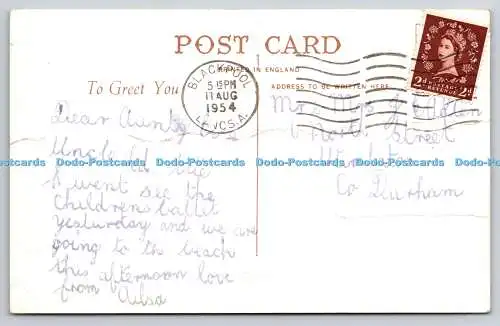 POST CARD
PRINTED IN ENGLAND
To Greet You
ADDRESS TO BE WRITTEN HERE
BLACKPOOL
5 15 PM
11 AUG
1954
LANCS. A.
POSTAGE
REVENUE
2d 2d
Dear Aunty
Uncle
I went see the
Childrens ballet
yesterday and we are
going to the beach
this afternoon love
from Ailsa
Mrs
North Street
Co Durham
Dodo-Postcards Dodo-Postcards Dodo-Postcards Dodo-Postcards Dodo-Postcards Dodo-Postcards